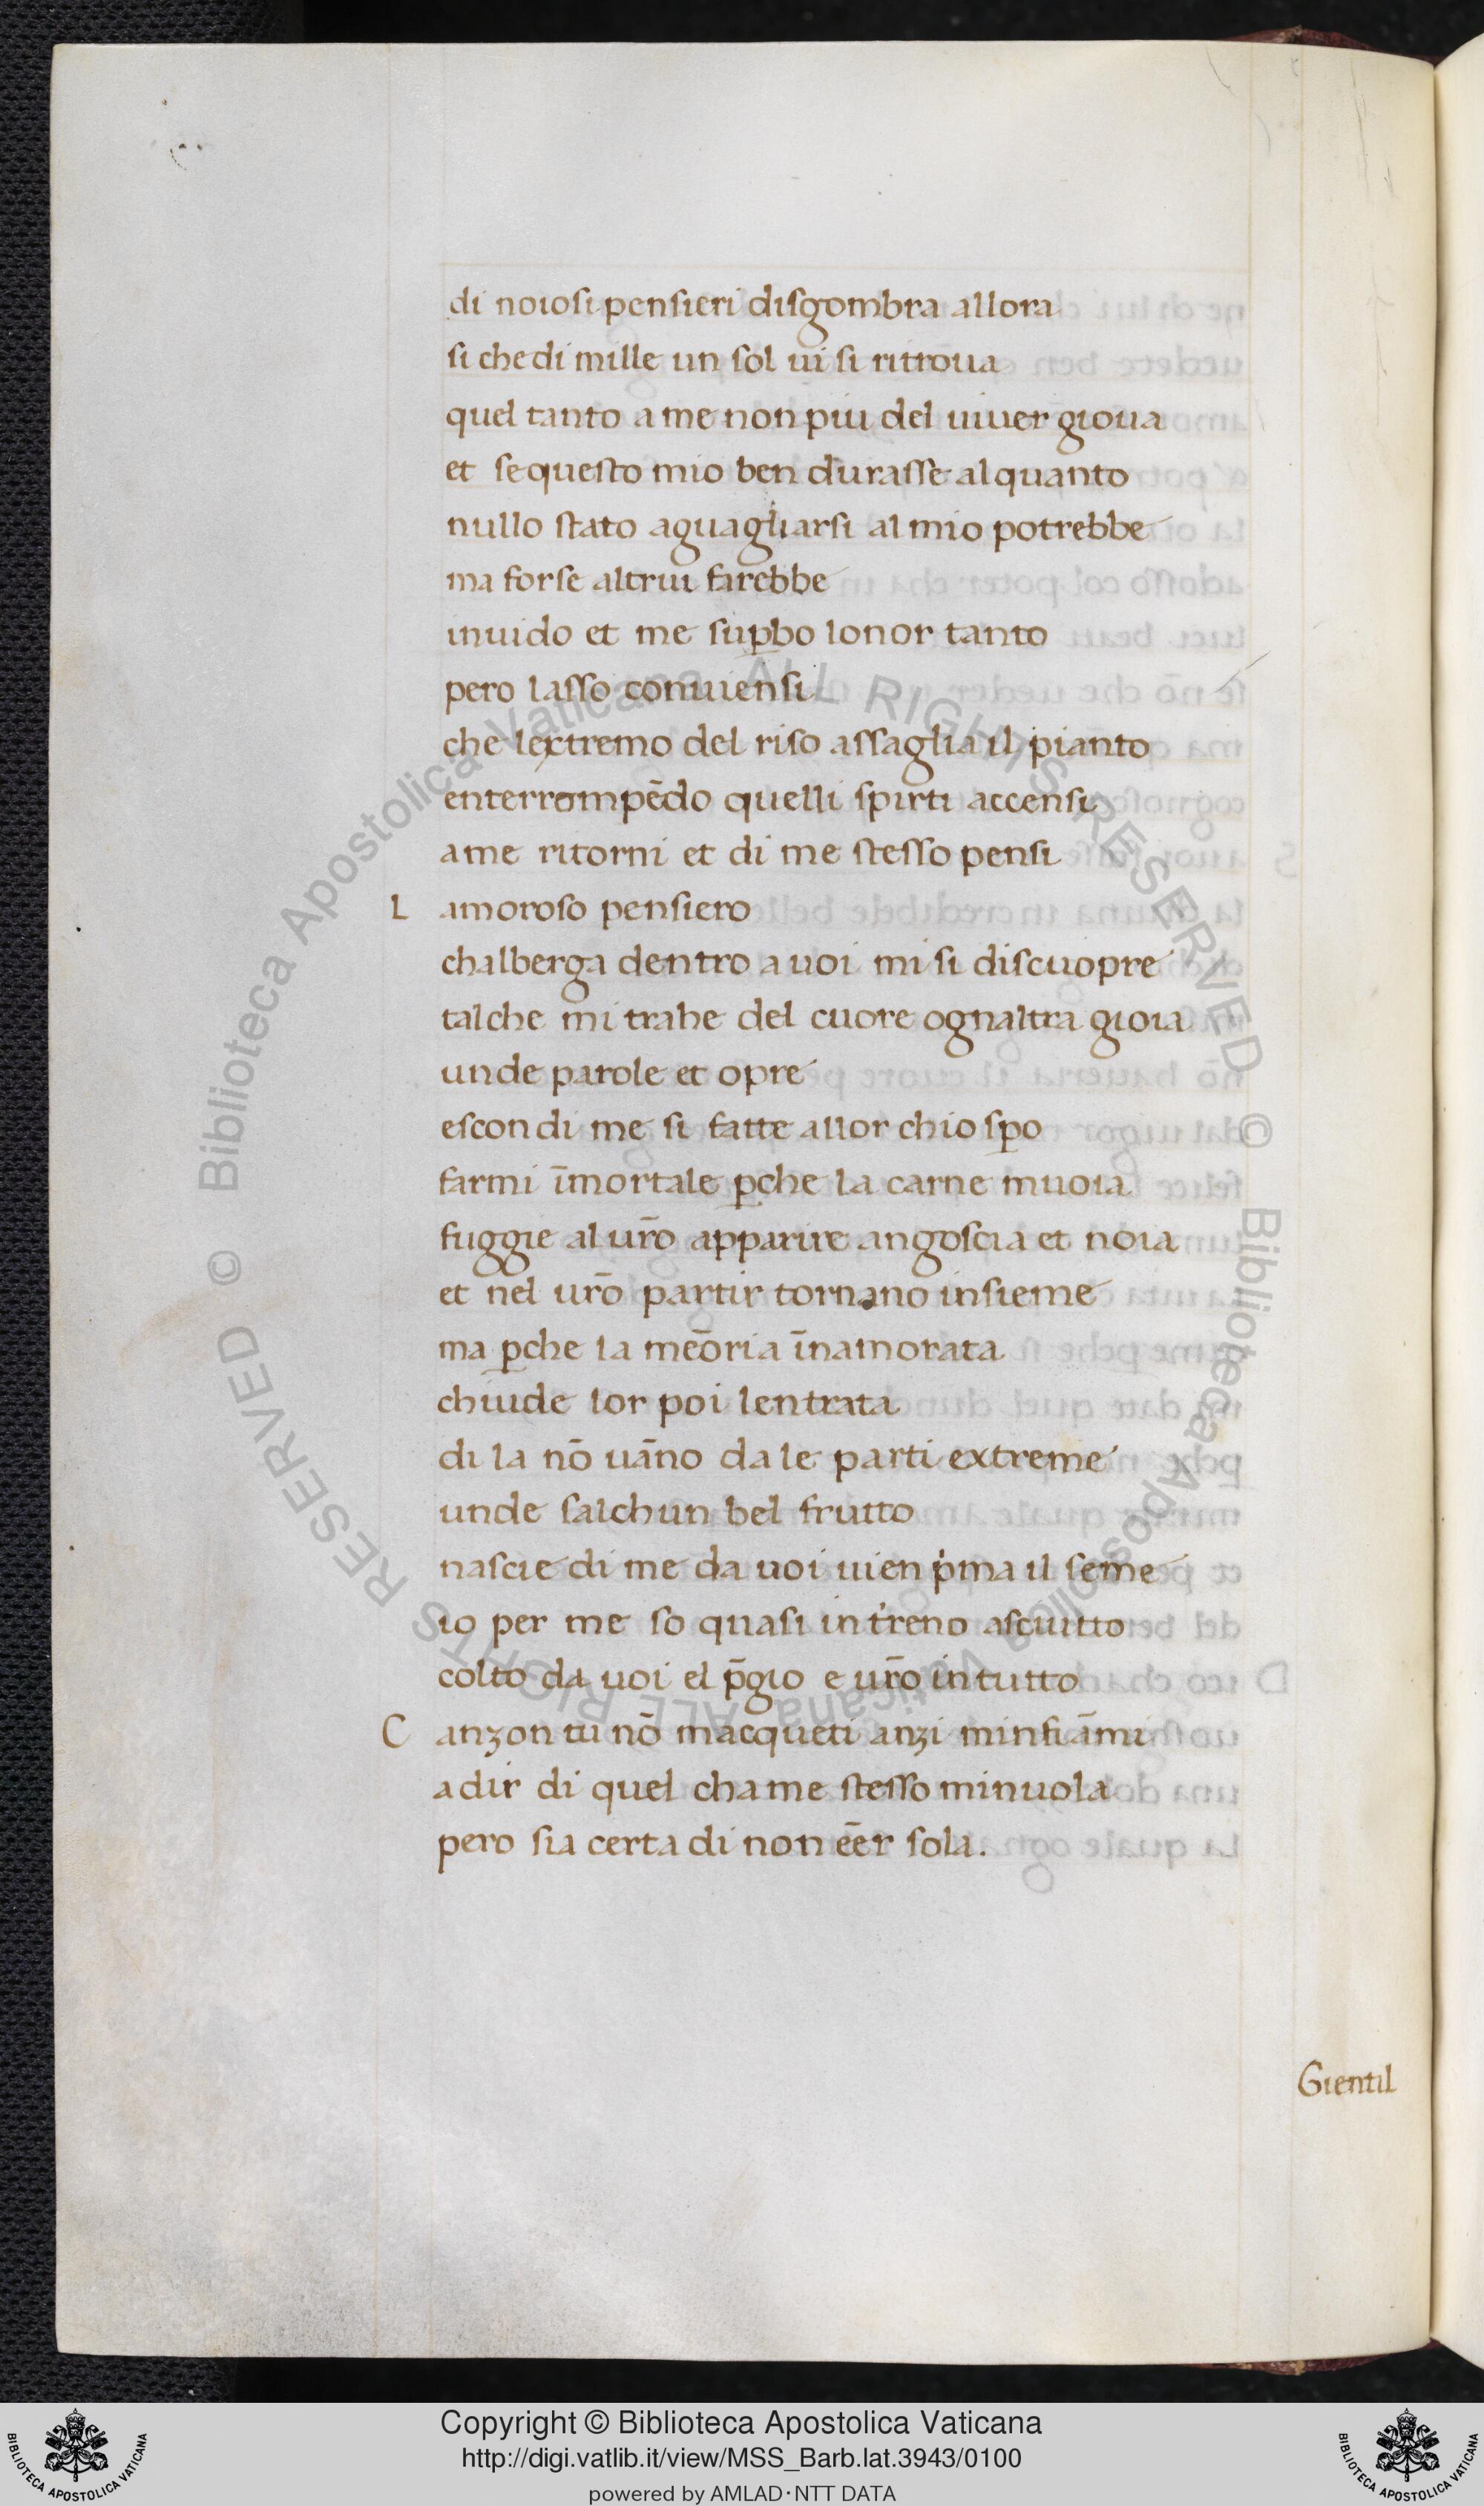 di noiosi pensieri disgombra allora
si che di mille un sol ui si ritroua
quel tanto a me non piu del uiuer gioua
et se questo mio ben durasse alquanto
nullo stato aguagliarsi al mio potrebbe
ma forse altrui farebbe
inuido et me sup̲bo lonor tanto
pero lasso conuiensi
che lextremo del riso assaglia il pianto
enterrompēdo quelli spirti accensi
a me ritorni et di me stesso pensi
L amoroso pensiero
chalberga dentro a uoi mi si discuopre
talche mi trahe del cuore ognaltra gioia
unde parole et opre
escon di me si fatte allor chio sp̲o
farmi īmortale p̲che la carne muoia
fuggie al ur̄o apparire angoscia et noia
et nel ur̄o partir tornano insieme
ma p̲che la mēoria īnamorata
chiude lor poi lentrata
di la nō uāno da le parti extreme
unde salchun bel frutto
nascie di me da uoi uien pͥma il seme
io per me so quasi in tr̄eno asciutto
colto da uoi el p̄gio e ur̄o in tutto
C anzon tu nō macqueti anzi minfiāmi
a dir di quel cha me stesso minuola
pero sia certa di non eēr sola.
Gientil
Copyright © Biblioteca Apostolica Vaticana
http://digi.vatlib.it/view/MSS_Barb.lat.3943/0100
powered by AMLAD·NTT DATA
BIBLIOTECA APOSTOLICA VATICANA
BIBLIOTECA APOSTOLICA VATICANA
© Biblioteca Apostolica Vaticana ALL RIGHTS RESERVED
© Biblioteca Apostolica Vaticana ALL RIGHTS RESERVED